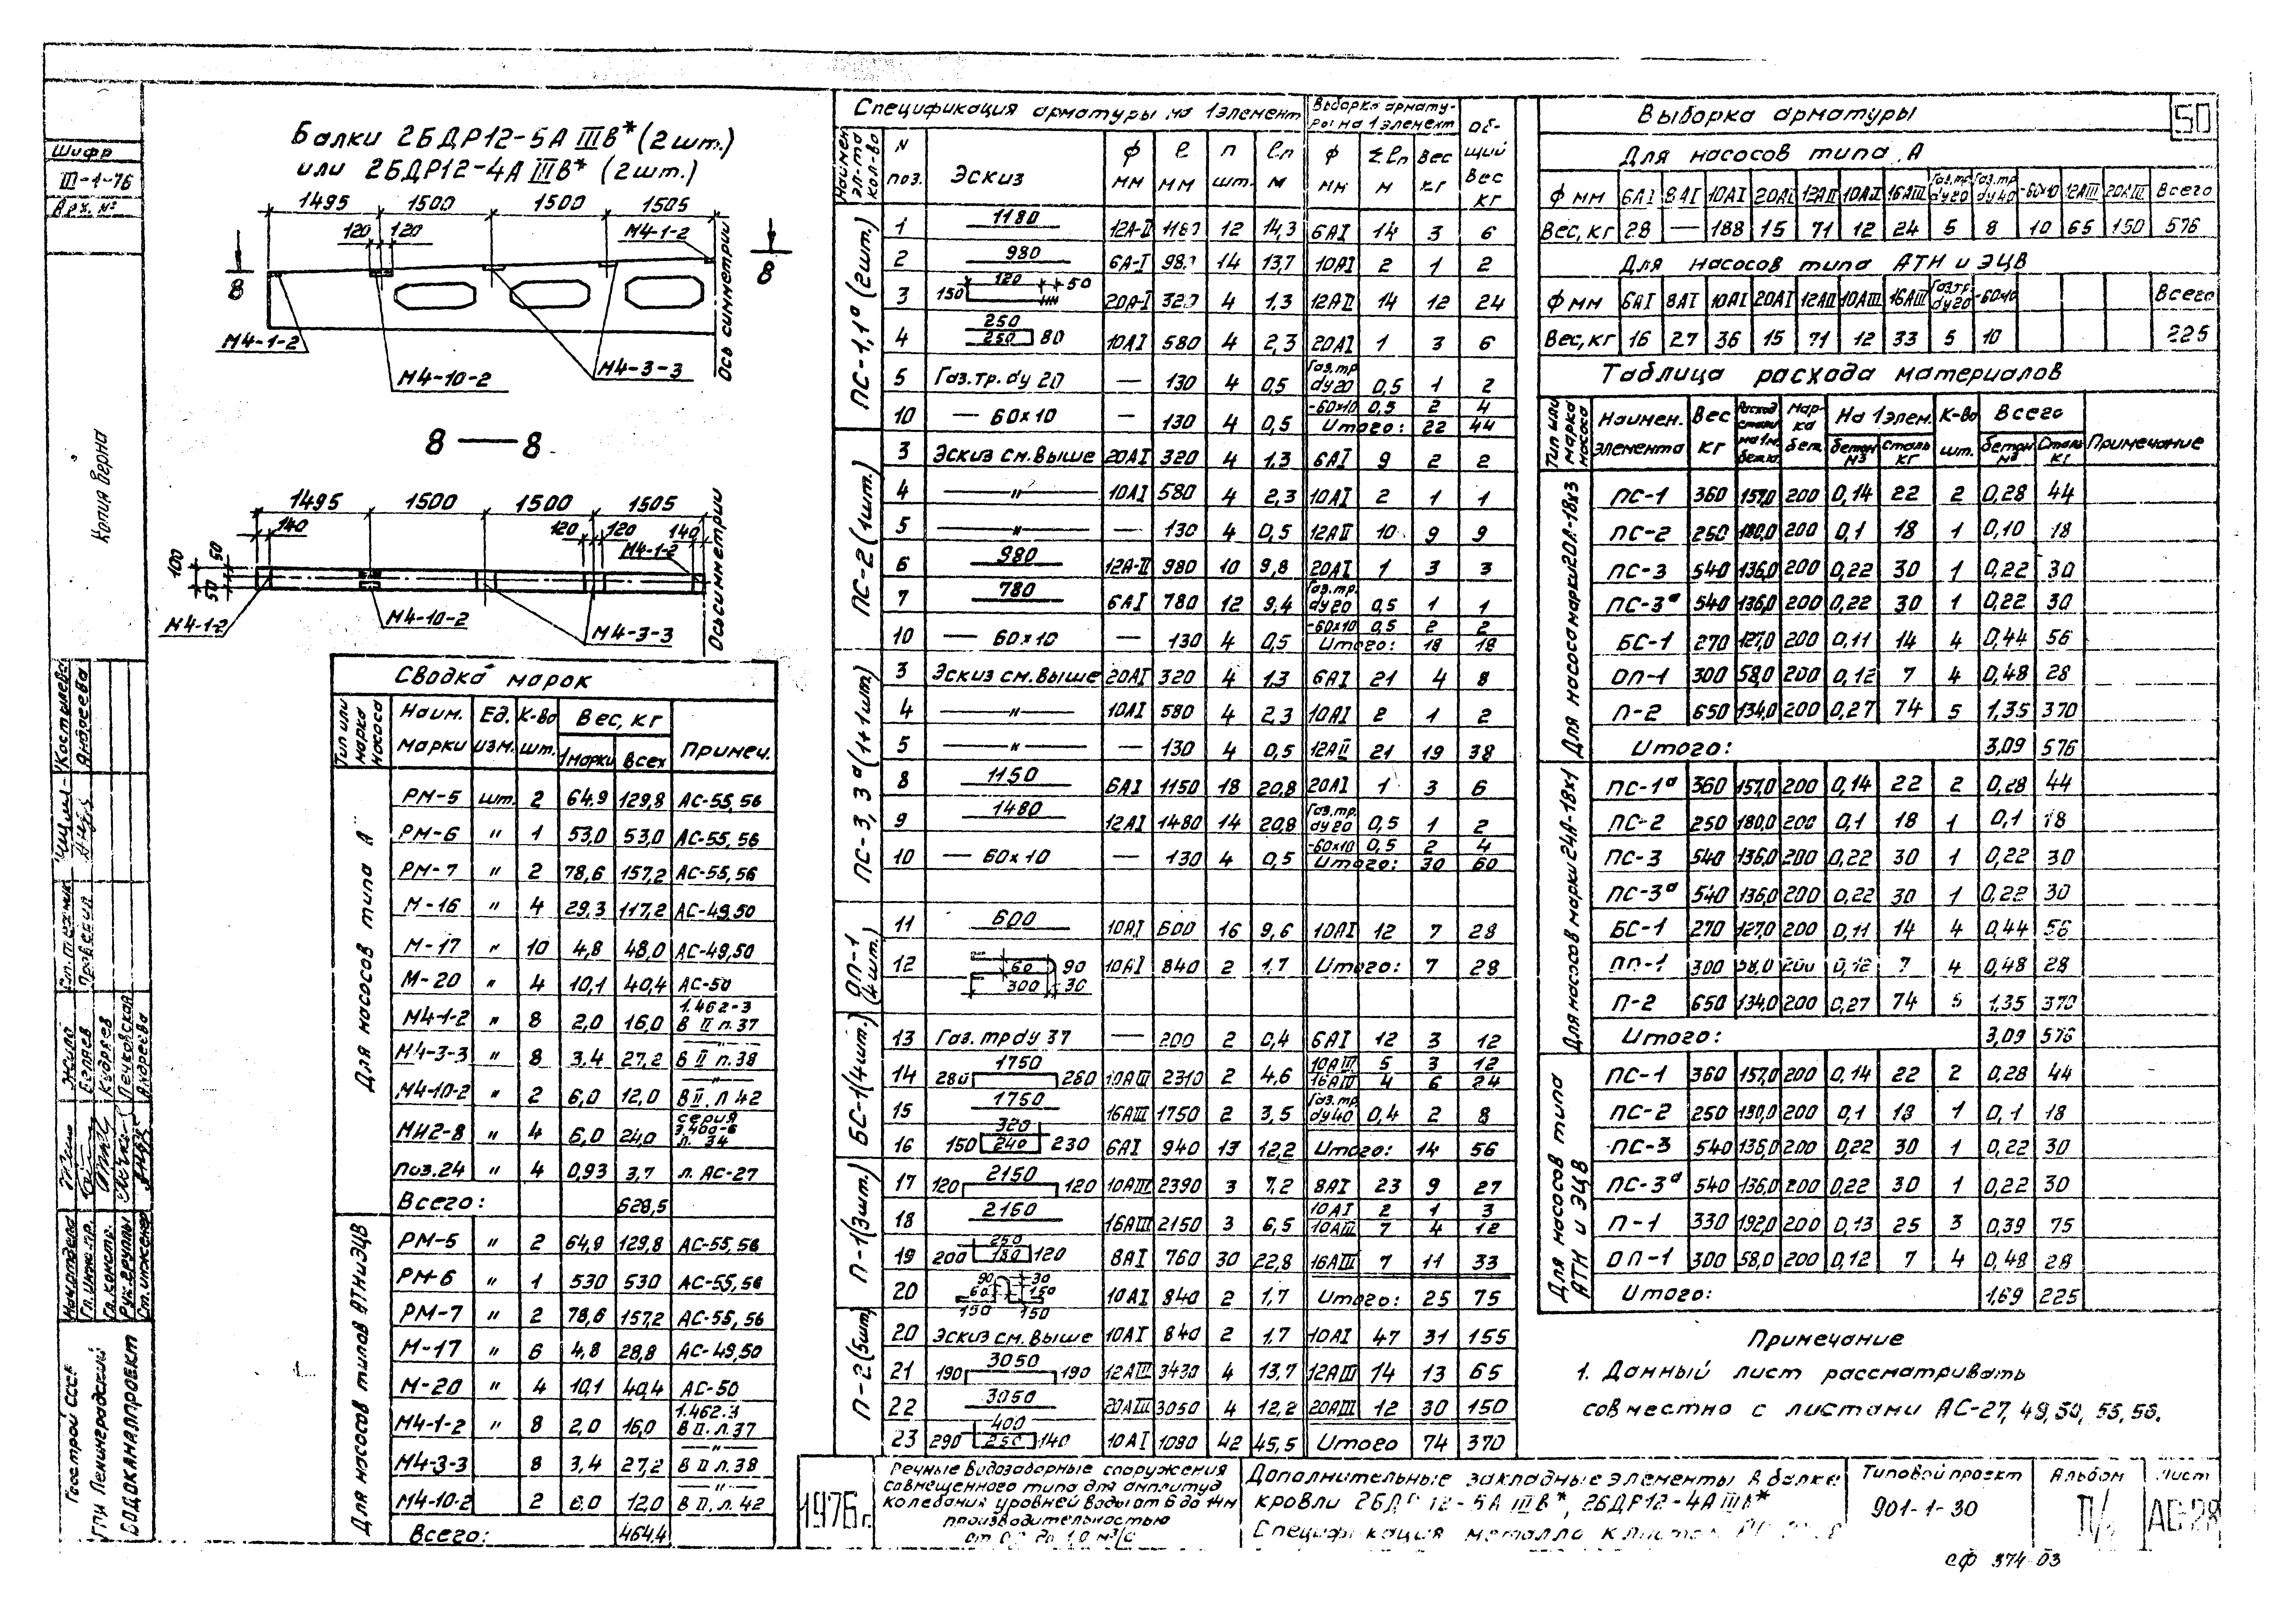 50
Шифр
III-1-76
Арх. №
Копия верна
Балки 2БДР12-5А IIIВ* (2 шт.)
или 2БДР12-4А IIIВ* (2 шт.)
1495 1500 1500 1505
120 120 М4-1-2
8 8
М4-1-2 М4-10-2 М4-3-3 Ось симметрии
8 — 8
1495 1500 1500 1505
140 120 120 140
М4-1-2
100 50 50
М4-1-2 М4-10-2 М4-3-3 Ось симметрии
Сводка марок
Тип или марка насоса | Наим. марки | Ед. изм. | К-во шт. | Вес, кг 1 марки | Всех | Примеч.
Для насосов типа А
РМ-5 шт. 2 64,9 129,8 АС-55,56
РМ-6 " 1 53,0 53,0 АС-55,56
РМ-7 " 2 78,6 157,2 АС-55,56
М-16 " 4 29,3 117,2 АС-49,50
М-17 " 10 4,8 48,0 АС-49,50
М-20 " 4 10,1 40,4 АС-50
М4-1-2 " 8 2,0 16,0 1.462-3 В II л.37
М4-3-3 " 8 3,4 27,2 —"— В II л.38
М4-10-2 " 2 6,0 12,0 —"— В II. Л 42
МН2-8 " 4 6,0 24,0 серия 3.400-6 л. 34
поз.24 " 4 0,93 3,7 л. АС-27
Всего: 628,5
Для насосов типов АТНиЭЦВ
РМ-5 " 2 64,9 129,8 АС-55,56
РМ-6 " 1 530 530 АС-55,56
РМ-7 " 2 78,6 157,2 АС-55,56
М-17 " 6 4,8 28,8 АС-49,50
М-20 " 4 10,1 40,4 АС-50
М4-1-2 " 8 2,0 16,0 1.462.3 В II. л.37
М4-3-3 8 3,4 27,2 —"— В II л.38
М4-10-2 2 6,0 12,0 —"— В II. л.42
Всего: 464,4
Спецификация арматуры на 1 элемент | Выборка арматуры на 1 элемент | Общий вес кг
Наимен. эл-та кол-во | N поз. | Эскиз | ф мм | ℓ мм | n шт. | ℓn м | ф мм | Σℓn м | Вес кг
ПС-1,1ª (2шт.)
1 1180 12А-II 1180 12 14,3 6АI 14 3 6
2 980 6А-I 980 14 13,7 10АI 2 1 2
3 150 120 50 20А-I 320 4 1,3 12АII 14 12 24
4 250 250 80 10АI 580 4 2,3 20АI 1 3 6
5 Газ.тр. dу 20 — 130 4 0,5 Газ.тр dу20 0,5 1 2
10 — 60х10 — 130 4 0,5 -60х10 0,5 2 4
Итого: 22 44
ПС-2 (1шт.)
3 Эскиз см. выше 20АI 320 4 1.3 6АI 9 2 2
4 —"— 10АI 580 4 2,3 10АI 2 1 1
5 —"— — 130 4 0,5 12АII 10 9 9
6 980 12А-II 980 10 9,8 20АI 1 3 3
7 780 6АI 780 12 9,4 Газ.тр. dу20 0,5 1 1
10 — 60х10 — 130 4 0,5 -60х10 0,5 2 2
Итого: 18 18
ПС-3, 3ª (1+1шт.)
3 Эскиз см. выше 20АI 320 4 1.3 6АI 21 4 8
4 —"— 10АI 580 4 2,3 10АI 2 1 2
5 —"— — 130 4 0,5 12АII 21 19 38
8 1150 6АI 1150 18 20,8 20АI 1 3 6
9 1480 12АI 1480 14 20,8 Газ.тр. dу20 0,5 1 2
10 — 60х10 — 130 4 0,5 -60х10 0,5 2 4
Итого: 30 60
ОП-1 (4 шт.)
11 600 10АI 600 16 9,6 10АI 12 7 28
12 60 90 300 30 10АI 840 2 1,7 Итого: 7 28
БС-1 (4шт.)
13 Газ. тр dу 37 — 200 2 0,4 6АI 12 3 12
14 280 1750 260 10АIII 2310 2 4,6 10АIII 5 3 12
16АIII 4 6 24
15 1750 16АIII 1750 2 3,5 Газ.тр. dу40 0,4 2 8
16 150 320 240 230 6АI 940 13 12,2 Итого: 14 56
П-1 (3шт.)
17 120 2150 120 10АIII 2390 3 7,2 8АI 23 9 27
18 2160 16АIII 2150 3 6,5 10АI 2 1 3
10АIII 7 4 12
19 200 250 180 120 8АI 760 30 22,8 16АIII 7 11 33
20 90 30 60 150 150 150 10АI 840 2 1.7 Итого: 25 75
П-2 (5шт)
20 Эскиз см. выше 10АI 840 2 1.7 10АI 47 31 155
21 190 3050 190 12АIII 3430 4 13,7 12АIII 14 13 65
22 3050 20АIII 3050 4 12,2 20АIII 12 30 150
23 290 400 250 140 10АI 1090 42 45,5 Итого 74 370
Выборка арматуры
Для насосов типа А
ф мм 6АI 8АI 10АI 20АI 12АII 10АIII 16АIII Газ.тр. dу20 Газ.тр dу40 -60х10 12АIII 20АIII Всего
Вес, кг 28 — 188 15 71 12 24 5 8 10 65 150 576
Для насосов типа АТН и ЭЦВ
ф мм 6АI 8АI 10АI 20АI 12АII 10АIII 16АIII Газ.тр. dу20 -60х10 Всего
Вес, кг 16 27 36 15 71 12 33 5 10 225
Таблица расхода материалов
Тип или марка насоса | Наимен. элемента | Вес кг | Расход стали на 1м³ бетона | Марка бет. | На 1 элем. бетон м³ | сталь кг | К-во шт. | Всего бетон м³ | Сталь кг | Примечание
Для насоса марки 20А-18х3
ПС-1 360 157,0 200 0,14 22 2 0,28 44
ПС-2 250 180,0 200 0,1 18 1 0,10 18
ПС-3 540 136,0 200 0,22 30 1 0,22 30
ПС-3ª 540 136,0 200 0,22 30 1 0,22 30
БС-1 270 127,0 200 0,11 14 4 0,44 56
ОП-1 300 58,0 200 0,12 7 4 0,48 28
П-2 650 134,0 200 0,27 74 5 1,35 370
Итого: 3,09 576
Для насосов марки 24А-18х1
ПС-1ª 360 157,0 200 0,14 22 2 0,28 44
ПС-2 250 180,0 200 0,1 18 1 0,1 18
ПС-3 540 136,0 200 0,22 30 1 0,22 30
ПС-3ª 540 136,0 200 0,22 30 1 0,22 30
БС-1 270 127,0 200 0,11 14 4 0,44 56
ОП-1 300 58,0 200 0,12 7 4 0,48 28
П-2 650 134,0 200 0,27 74 5 1,35 370
Итого: 3,09 576
Для насосов типа АТН и ЭЦВ
ПС-1 360 157,0 200 0,14 22 2 0,28 44
ПС-2 250 180,0 200 0,1 18 1 0,1 18
ПС-3 540 136,0 200 0,22 30 1 0,22 30
ПС-3ª 540 136,0 200 0,22 30 1 0,22 30
П-1 330 192,0 200 0,13 25 3 0,39 75
ОП-1 300 58,0 200 0,12 7 4 0,48 28
Итого: 1,69 225
Примечание
1. Данный лист рассматривать
совместно с листами АС-27, 49, 50, 55, 56.
Госстрой СССР
ГПИ Ленинградский
ВОДОКАНАЛПРОЕКТ
Нач. отдела Жило
Гл. инж. пр. Беляев
Гл. констр. Кудряев
Рук. группы Печковская
Ст. инженер Андреева
Ст. техник Костылева
Проверил Андреева
1976 г.
Речные водозаборные сооружения
совмещенного типа для амплитуд
колебания уровней воды от 6 до 14 м
производительностью
от до 1,0 м³/с
Дополнительные закладные элементы в балке
кровли 2БДР12-5А IIIВ*, 2БДР12-4А IIIВ*
Спецификация металла к листам
Типовой проект
901-1-30
Альбом
Лист
АС-28
сф 374-03